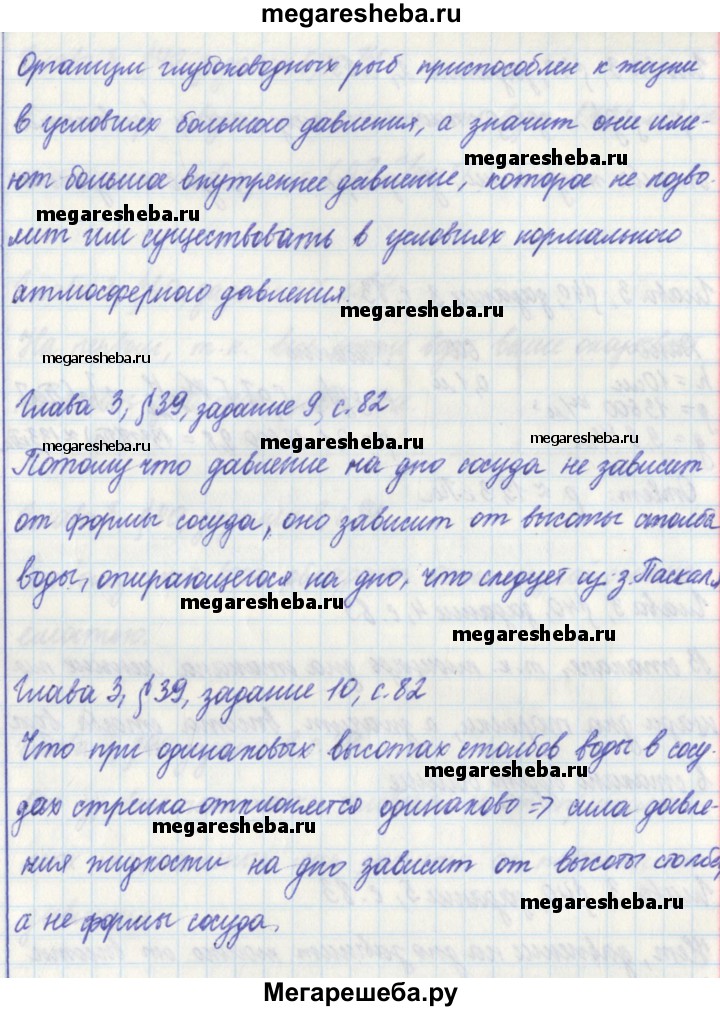 megaresheba.ru
Организм глубоководных рыб приспособлен к жизни
в условиях большого давления, а значит они име-
megaresheba.ru
ют большое внутреннее давление, которое не позво-
megaresheba.ru
лит им существовать в условиях нормального
атмосферного давления.
megaresheba.ru
megaresheba.ru
Глава 3, §39, задание 9, с.82
megaresheba.ru
Потому что давление на дно сосуда не зависит
от формы сосуда, оно зависит от высоты столба
megaresheba.ru
воды, опирающегося на дно, что следует из з. Паскаля
megaresheba.ru
megaresheba.ru
Глава 3, §39, задание 10, с.82
Что при одинаковых высотах столбов воды в сосу-
megaresheba.ru
дах стрелка отклоняется одинаково => сила давле-
megaresheba.ru
ния жидкости на дно зависит от высоты столба,
а не формы сосуда.
megaresheba.ru
Мегарешеба.ру